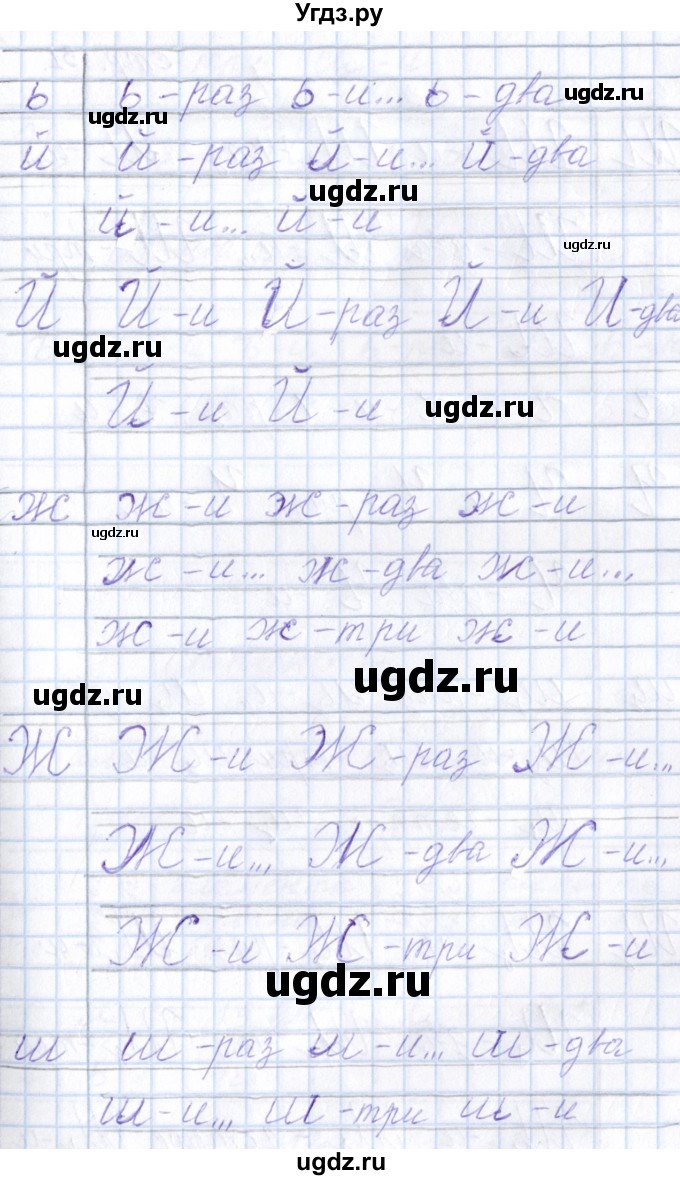 Угдз.ру
ь ь - раз ь - и... ь - два ugdz.ru
ugdz.ru
й й - раз й - и... й - два
ugdz.ru
й - и... й - и
ugdz.ru
Й Й - и Й - раз Й - и Й - два
ugdz.ru
Й - и Й - и ugdz.ru
ж ж - и ж - раз ж - и
ugdz.ru
ж - и... ж - два ж - и...
ж - и ж - три ж - и
ugdz.ru
ugdz.ru
Ж Ж - и Ж - раз Ж - и...
Ж - и... Ж - два Ж - и...
Ж - и Ж - три Ж - и
ugdz.ru
ш ш - раз ш - и... ш - два
ш - и... ш - три ш - и
ugdz.ru